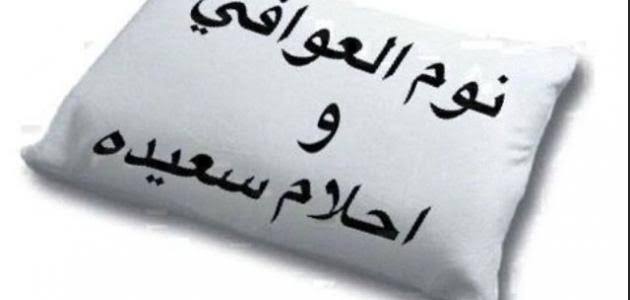 نوم العوافي
و
احلام سعيده